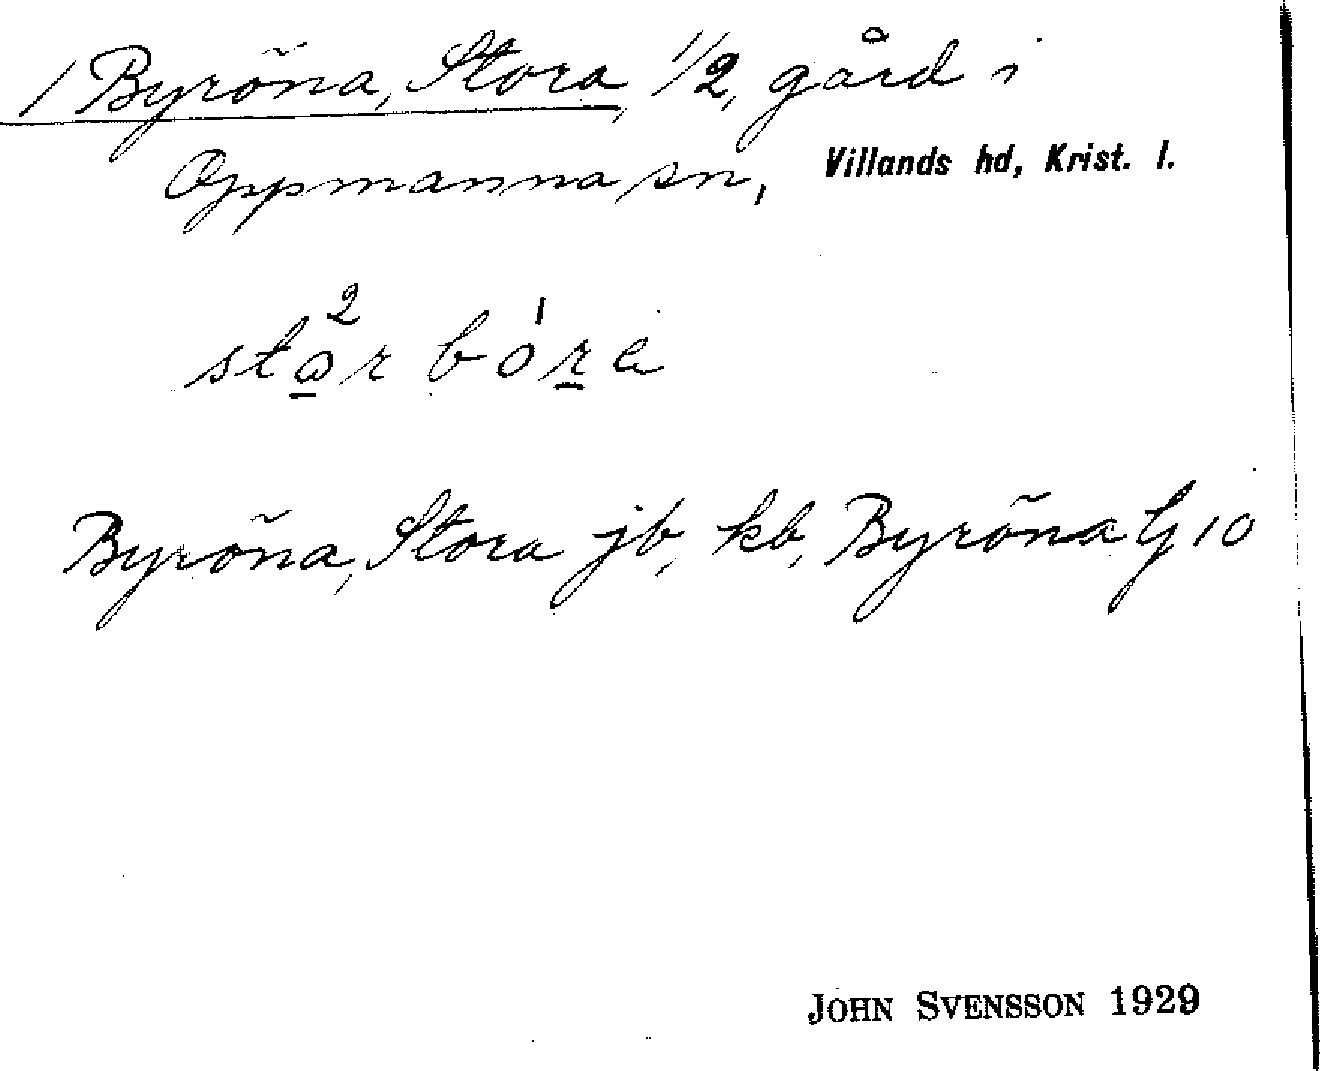 1 Byröna, Stora, 1/2, gård i
Oppmanna sn, Villands hd, Krist. l.
2 1
star böra
Byröna, Stora jb, kb, Byröna G 10
JOHN SVENSSON 1929